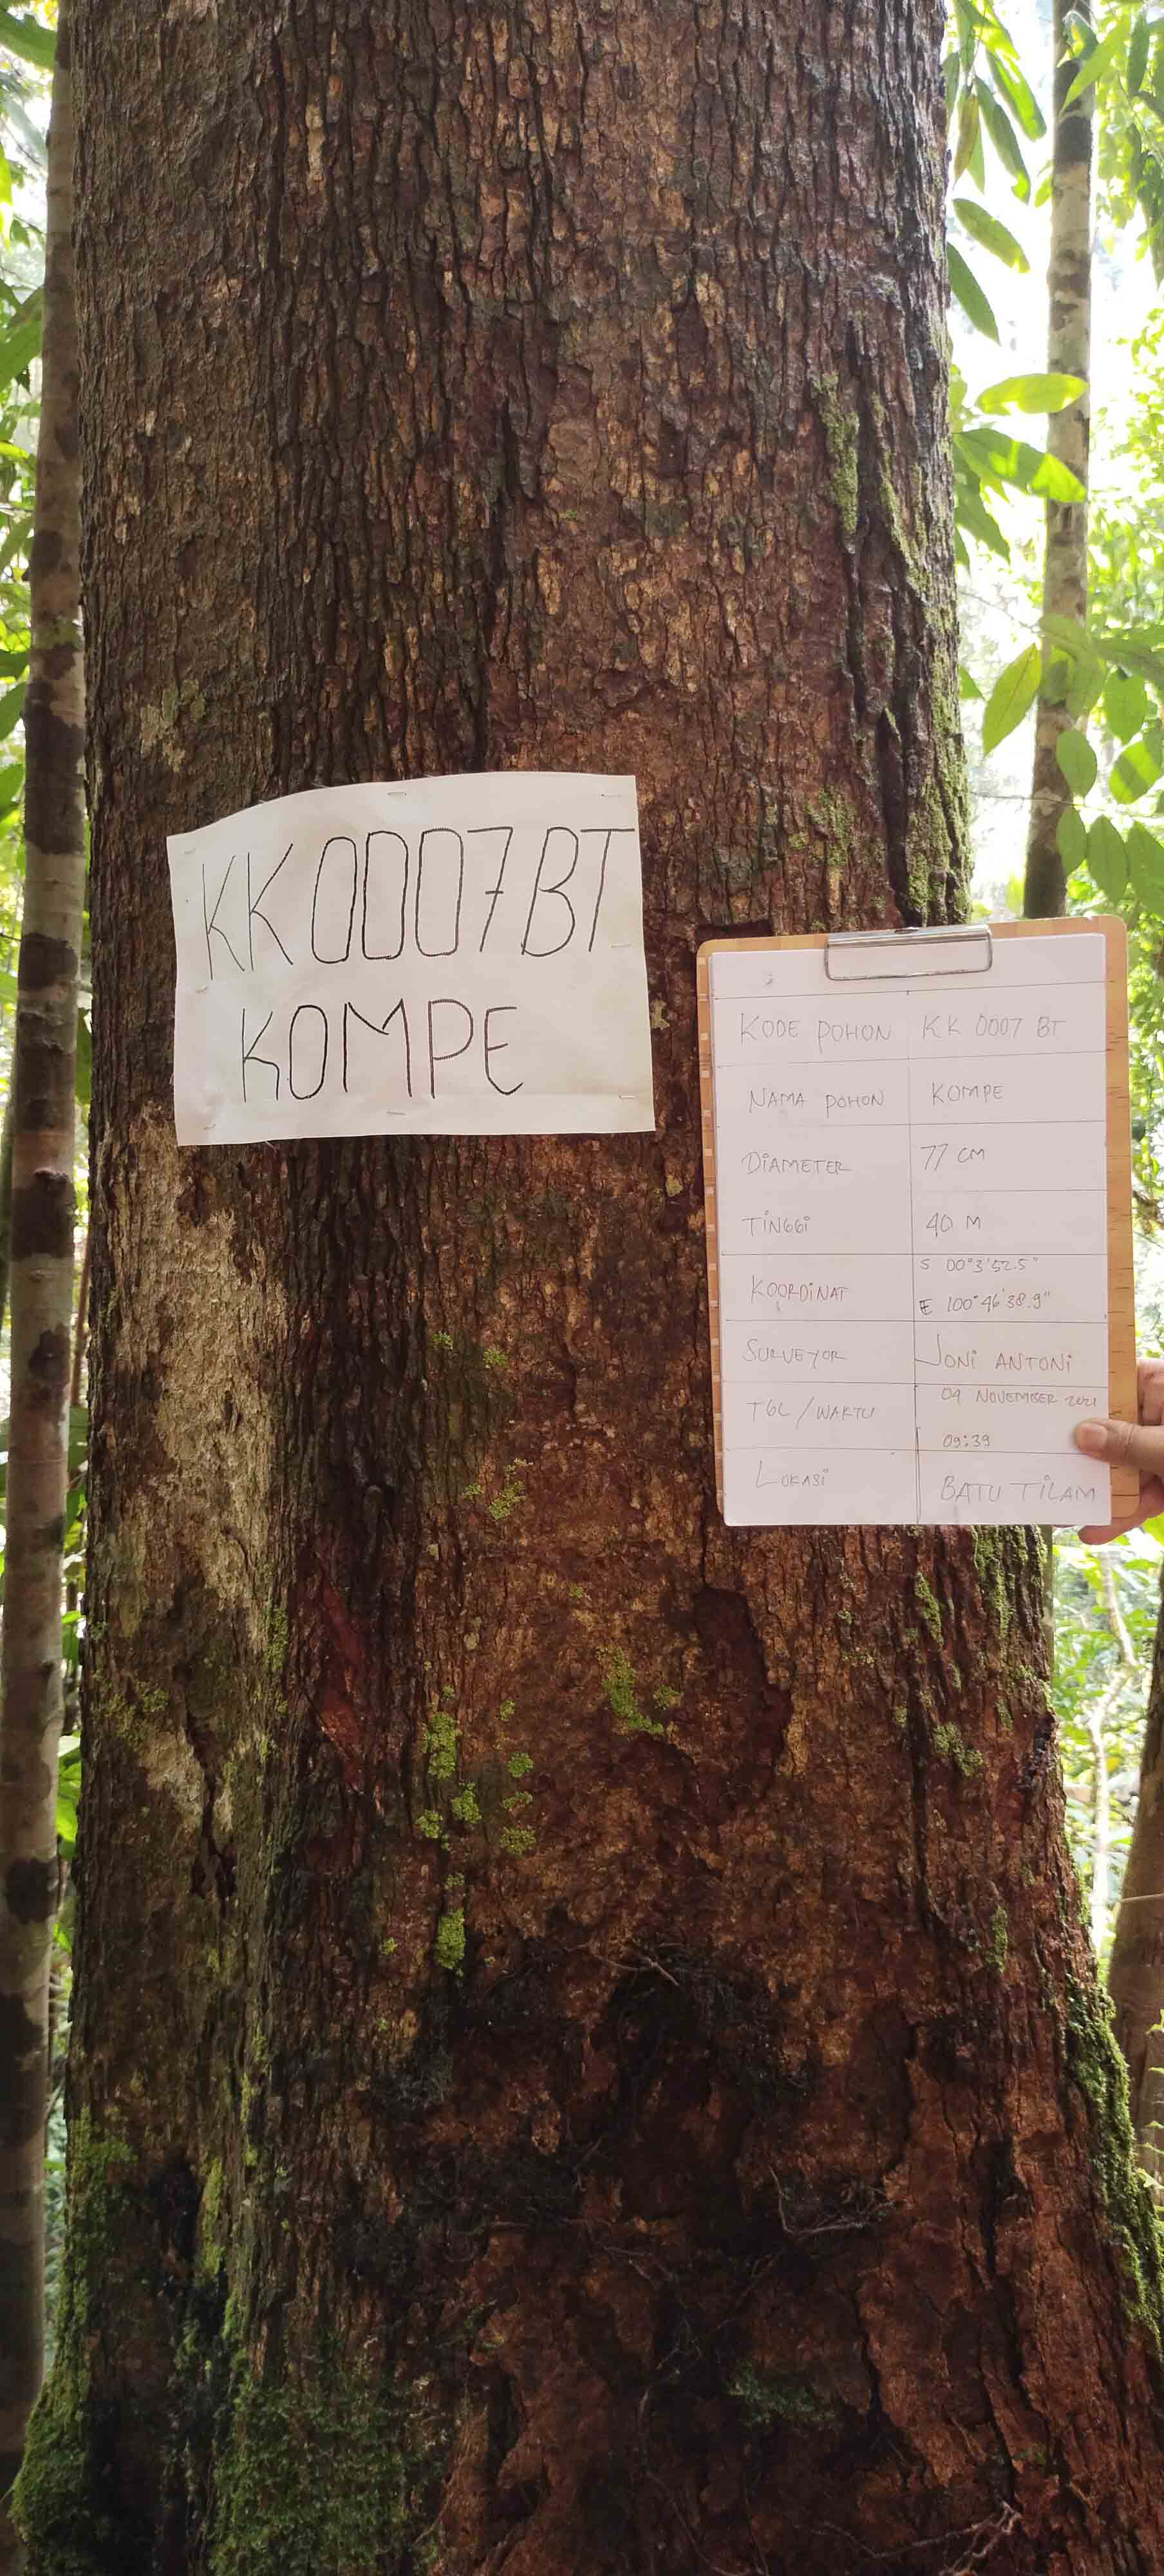 KK0007BT
KOMPE
KODE POHON KK 0007 BT
NAMA POHON KOMPE
DIAMETER 77 CM
TINGGI 40 M
KOORDINAT S 00°3'52.5"
E 100°46'38.9"
SURVEYOR JONI ANTONI
TGL/WAKTU 04 NOVEMBER 2021
09:39
LOKASI BATU TILAM